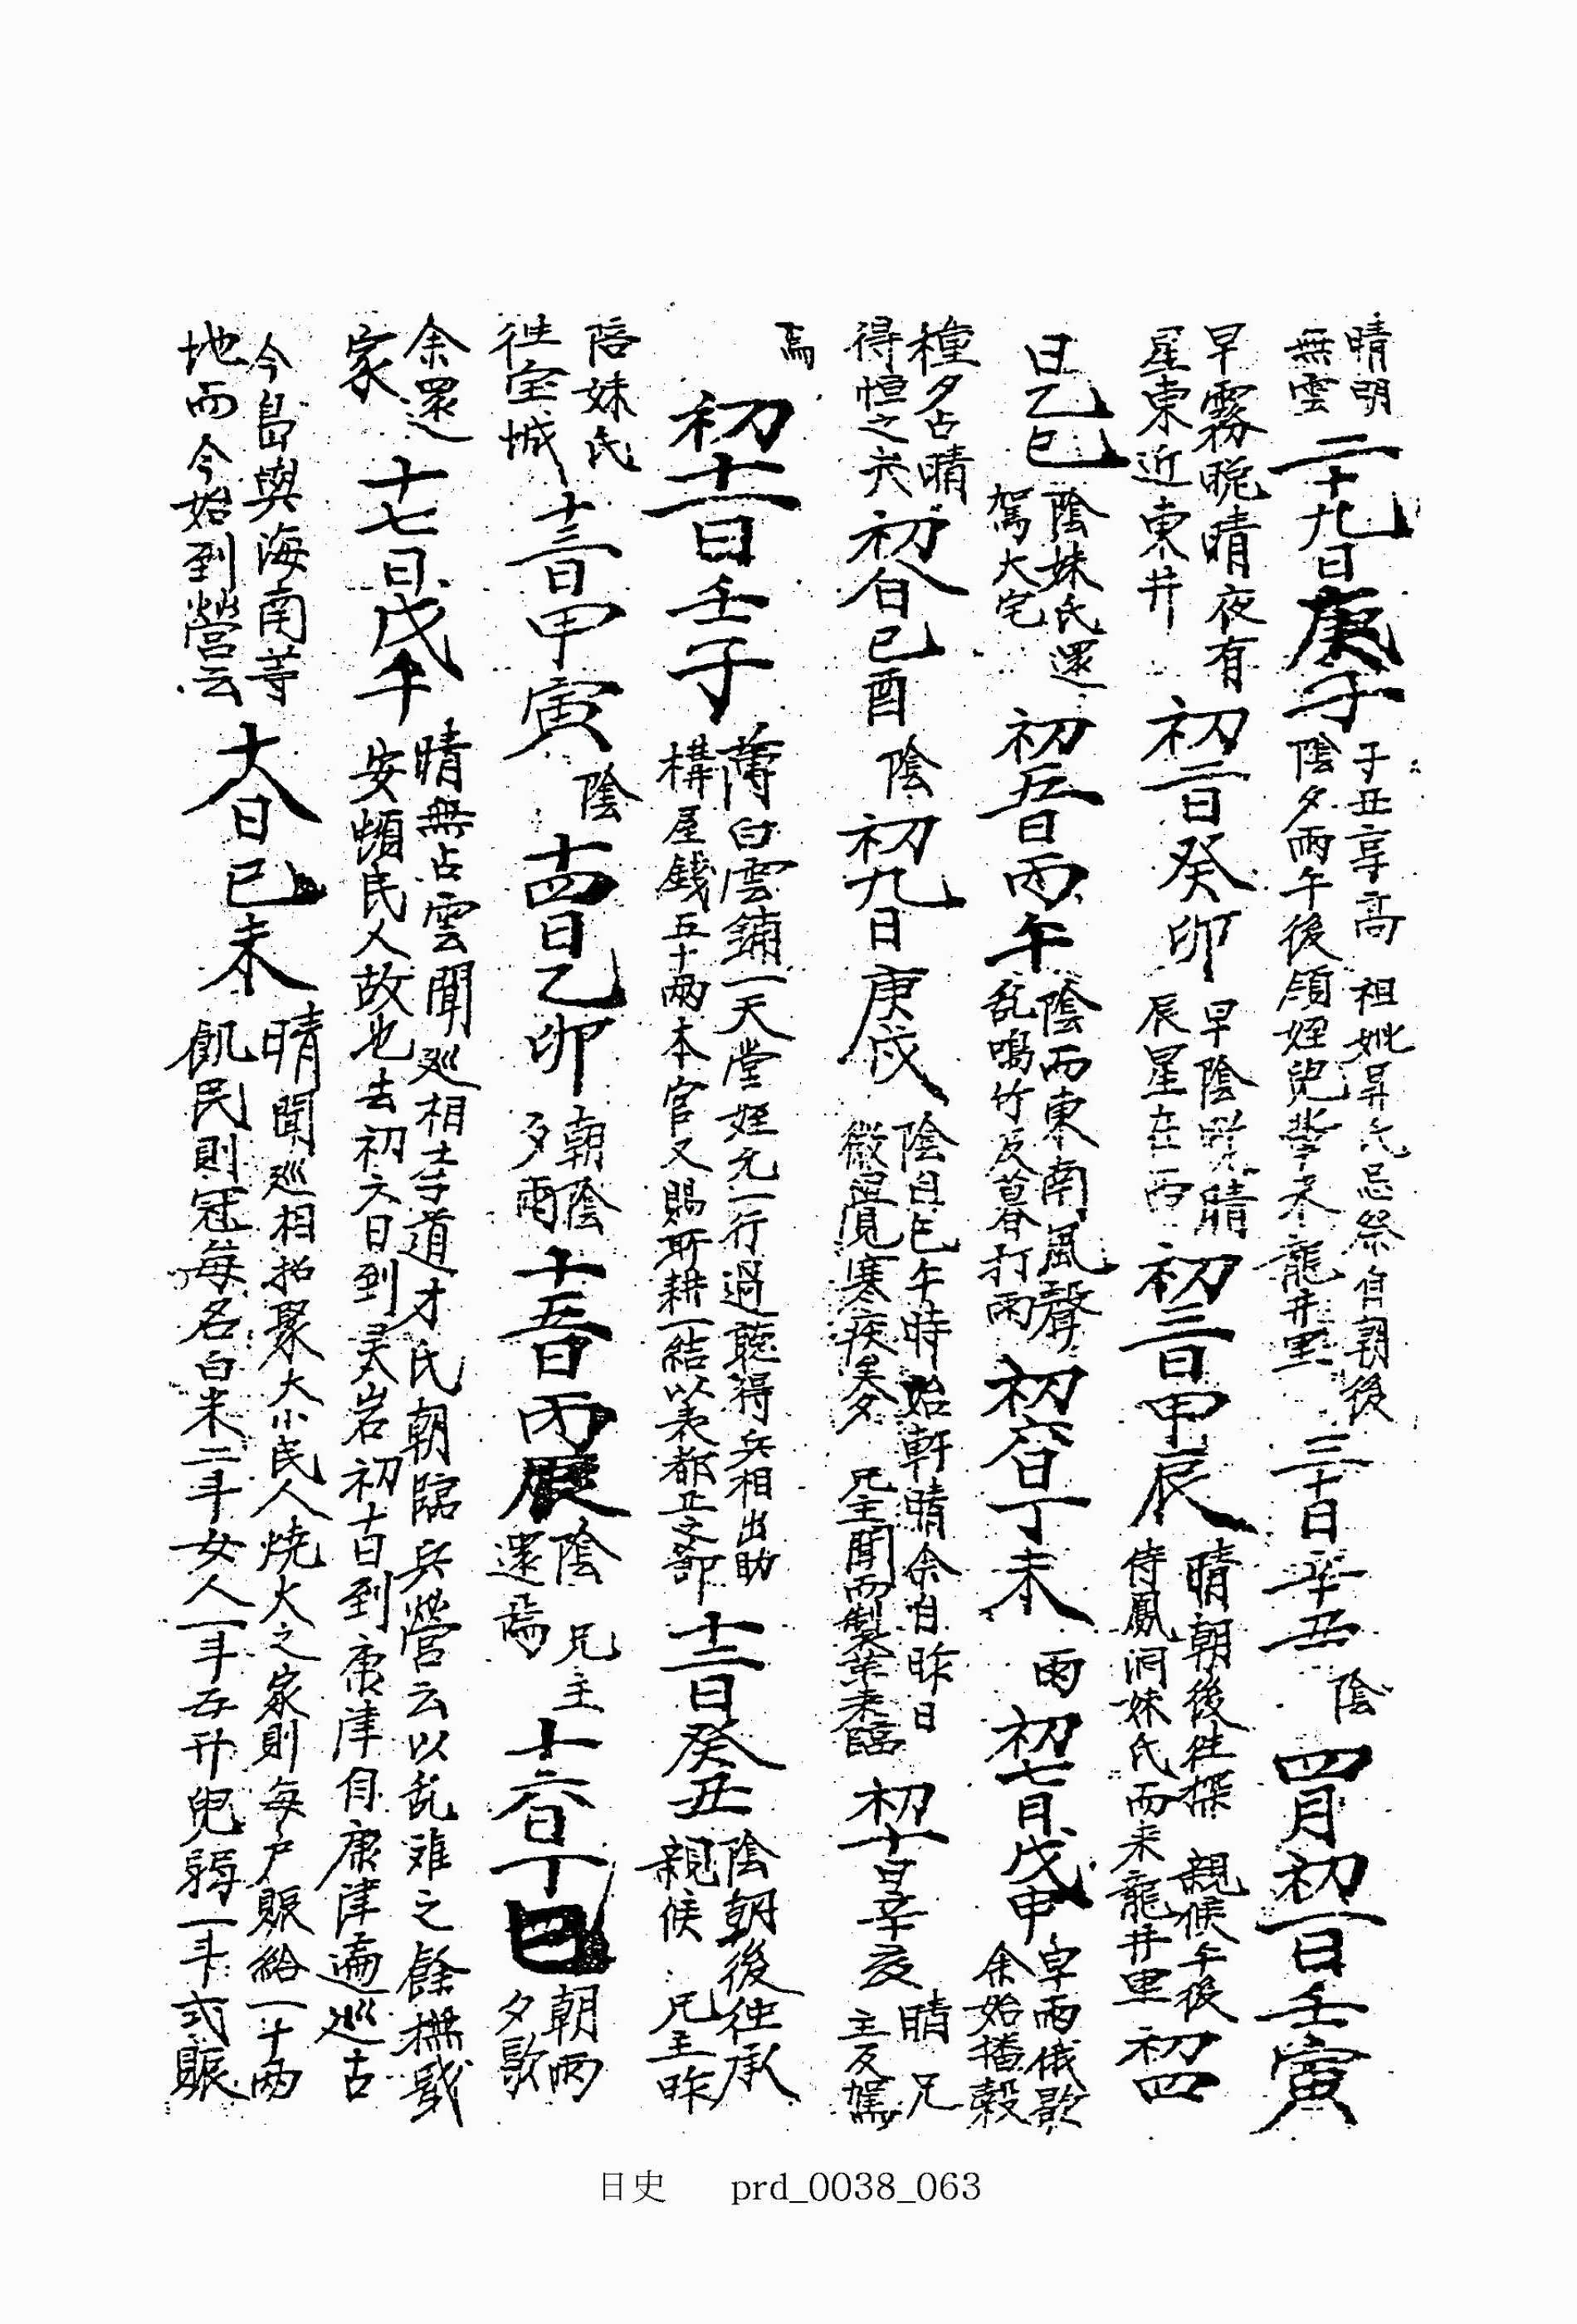 晴明無雲 二十九日庚子 子丑享高 祖妣吳氏忌祭自朝後陰夕雨午後領姪兒輩來龍井里 三十日辛丑 陰 四月初一日壬寅
早霧晩晴夜有星東近東井 初二日癸卯 早陰晩晴辰星在西 初三日甲辰 晴朝後往探 親候午後侍鳳洞妹氏而来龍井里 初四
日乙巳 陰妹氏還駕大宅 初五日丙午 陰而東南風聲乱鳴竹及暮打雨 初六日丁未 雨 初七日戊申 早雨俄歇余始播穀
種夕占晴得恒之 初八日己酉 陰 初九日庚戌 陰自巳午時始軒晴余自昨日微覺寒疾矣夕 兄主聞而製藥来臨 初十日辛亥 晴 兄主反駕
焉 初十一日壬子 薄白雲鋪一天堂姪元一行過聽得兵相出助構屋錢五十兩本官又賜所耕一結以表都正文郎 十二日癸丑 陰朝後往承 親候 兄主昨
陪妹氏往宝城 十三日甲寅 陰 十四日乙卯 朝陰夕雨 十五日丙辰 陰 兄主還焉 十六日丁巳 朝雨夕歇
余還家 十七日戊午 晴無占雲聞巡相李道才氏朝臨兵營云以乱难之餘撫戢安頓民人故也去初六日到灵岩初十日到康津自康津遍巡古
今島與海南等地而今始到營云 十八日己未 晴聞巡相招聚大小民人燒火之家則每戶賑給一十兩飢民則冠每名白米二斗女人一斗五升兒弱一斗式賑
日史 prd_0038_063